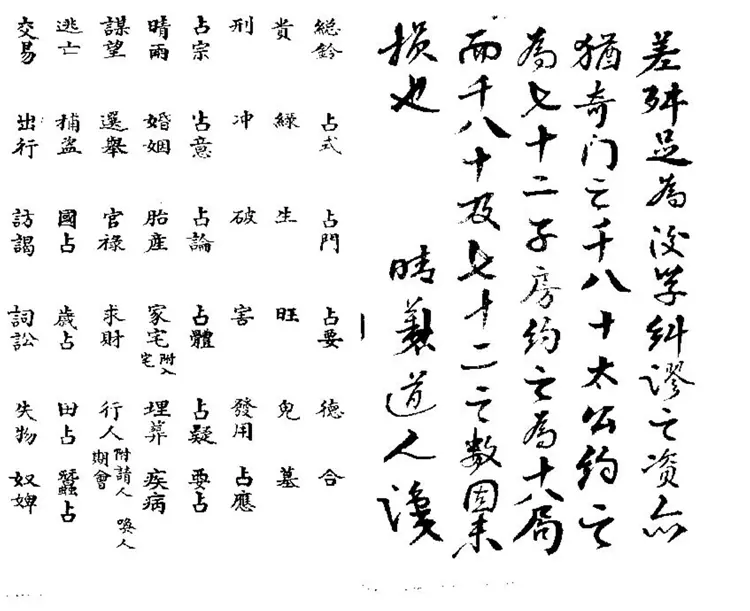 差殊足為学糾謬之資亦
猶奇门之千八十太公約之
為七十二子房約之為十八局
而千八十及七十二之數固未
损也 晴蓑道人識
総鈐 占式 占門 占要 德 合
貴 緑 生 旺 鬼 墓
刑 冲 破 害 發用 占應
占宗 占意 占論 占體 占疑 要占
晴雨 婚姻 胎産 家宅附入宅 埋葬 疾病
謀望 選舉 官祿 求財 行人附請人期會 喚人
逃亡 捕盜 國占 歲占 田占 蠶占
交易 出行 訪謁 詞訟 失物 奴婢